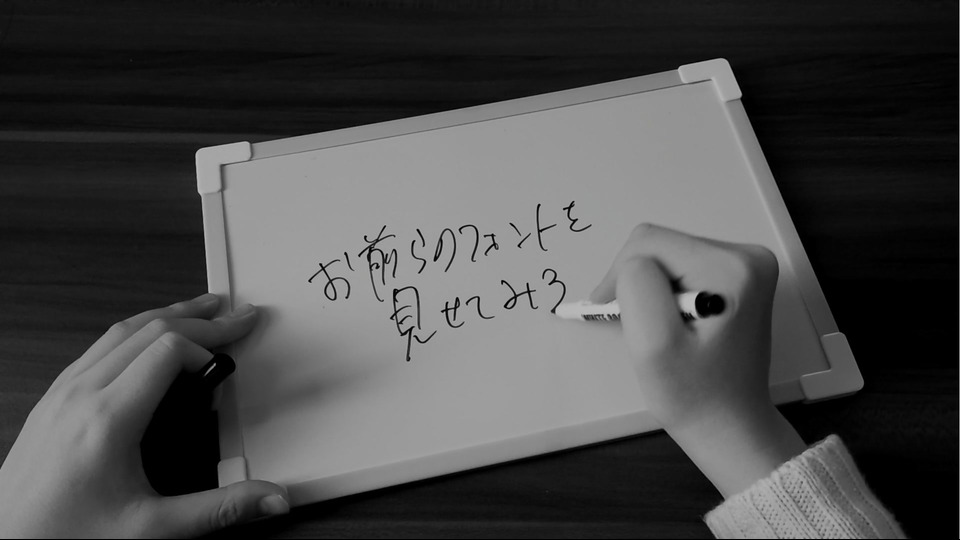 お前らのフォントを
見せてみろ
WHITE BOA